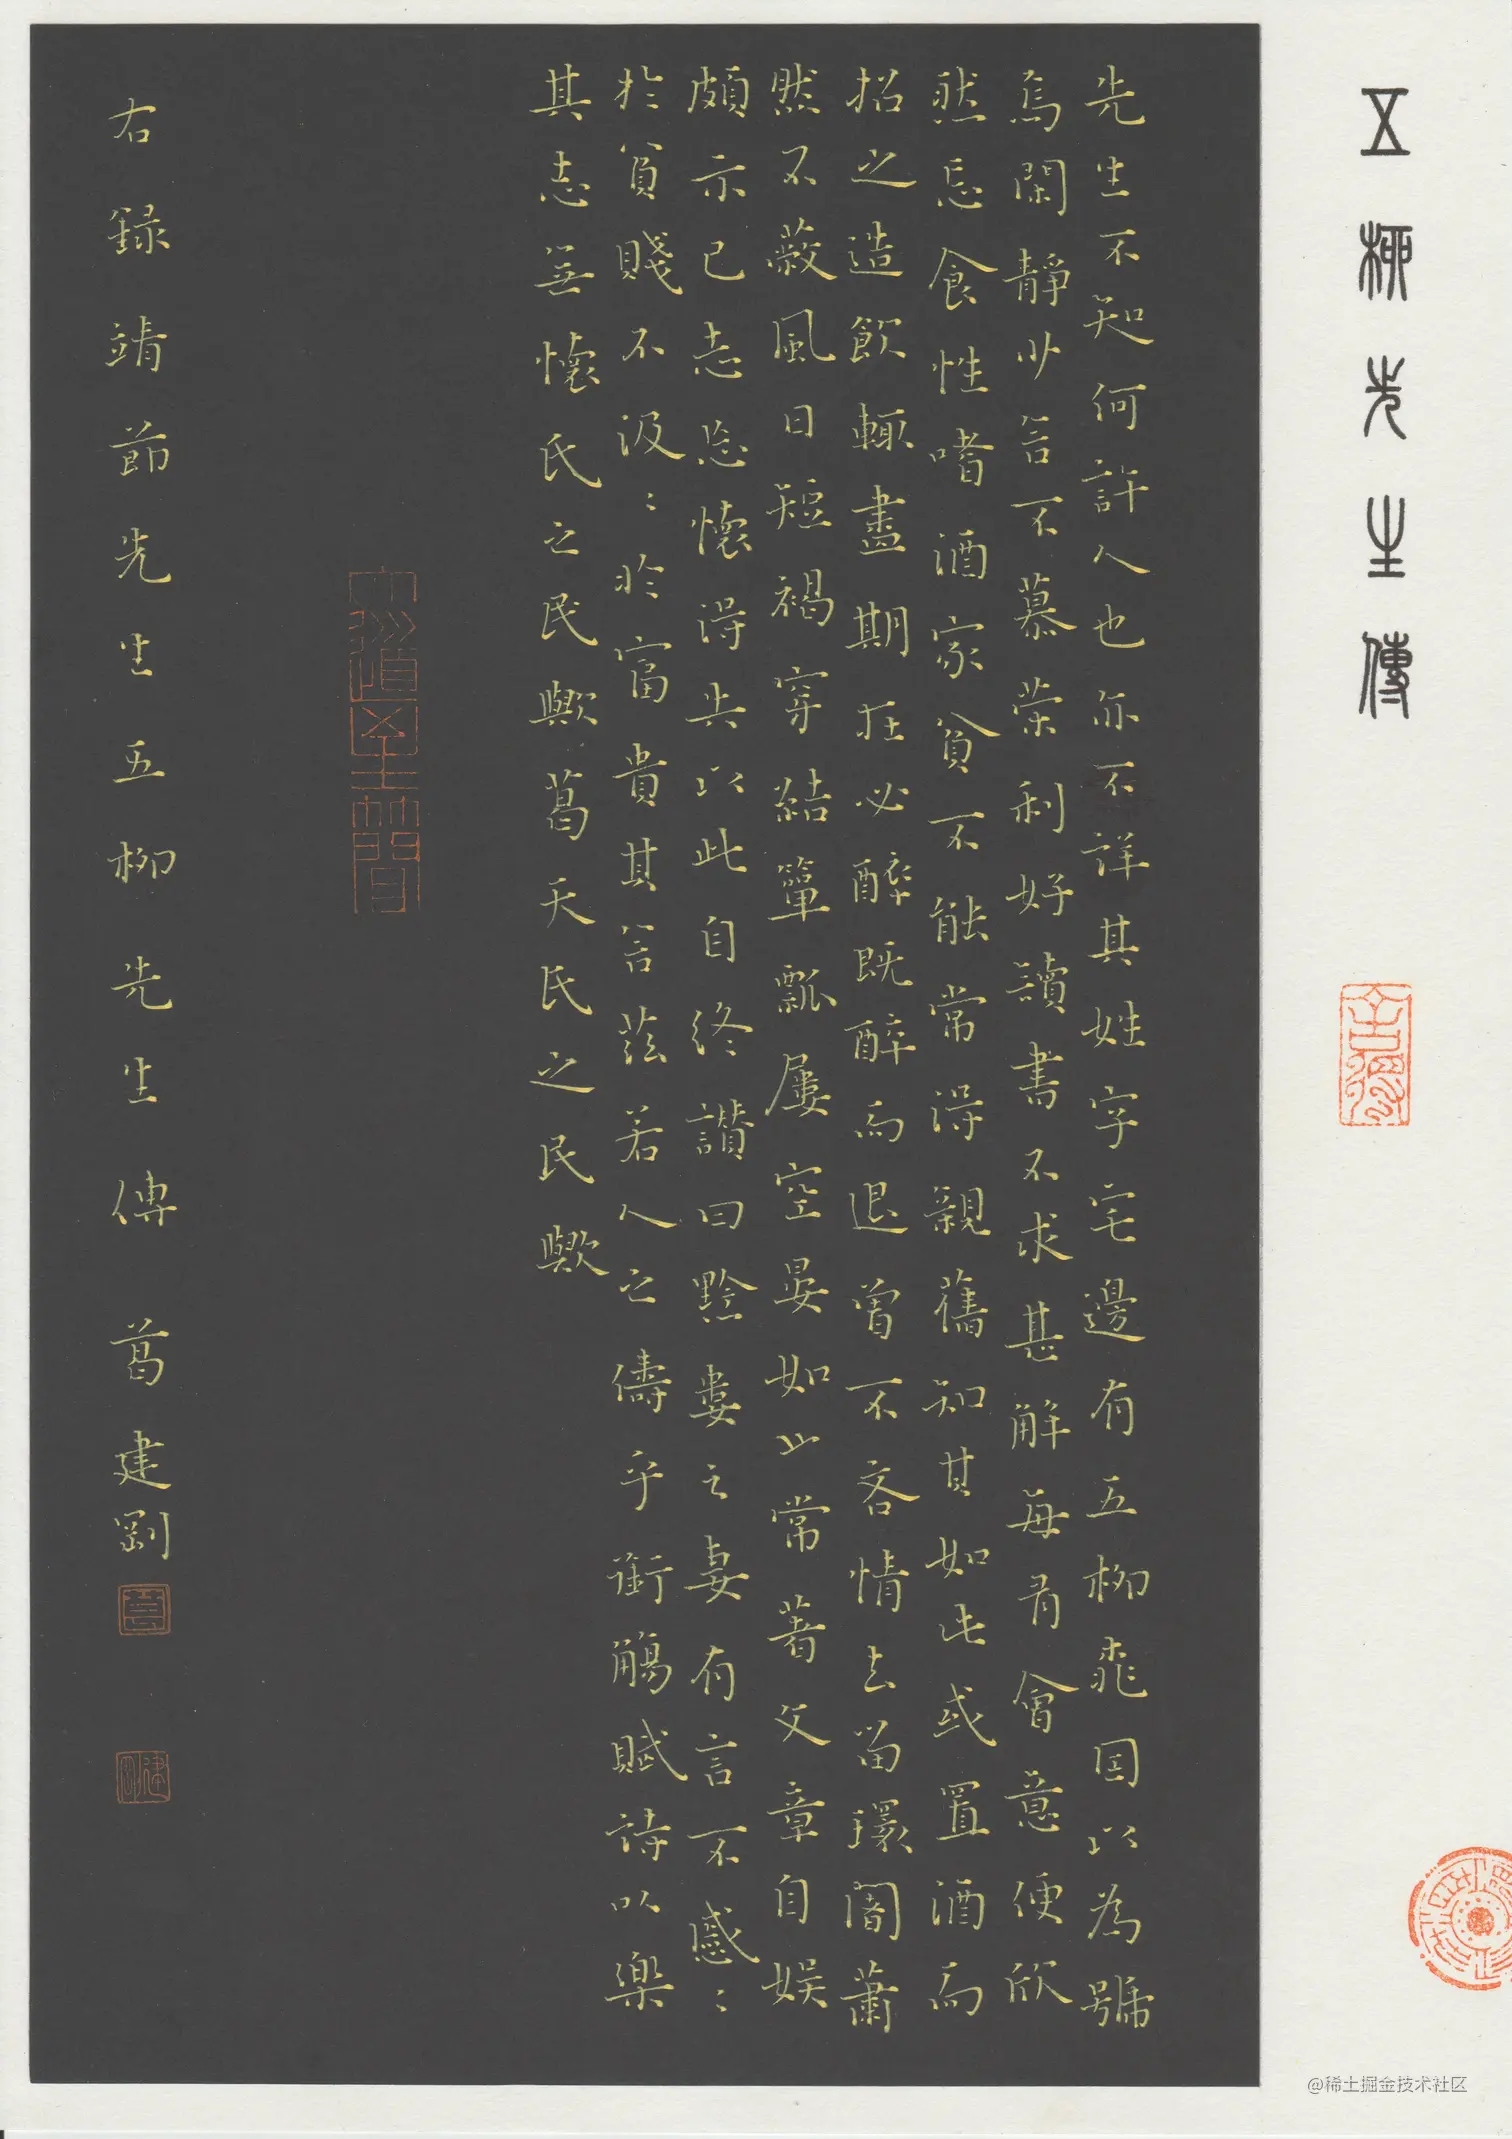 五柳先生傳
先生不知何許人也亦不詳其姓字宅邊有五柳因以為號
焉閑靜少言不慕榮利好讀書不求甚解每有會意便欣
然忘食性嗜酒家貧不能常得親舊知其如此或置酒而
招之造飲輒盡期在必醉既醉而退曾不吝情去留環闍蕭
然不蔽風日短褐穿結簞瓢屢空晏如也常著文章自娛
頗示己志忘懷得失以此自終讚曰黔婁之妻有言不慼〻
於貧賤不汲〻於富貴其言茲若人之儔乎銜觴賦詩以樂
其志無懷氏之民歟葛天氏之民歟
右錄靖節先生五柳先生傳 葛建剛
@稀土掘金技术社区